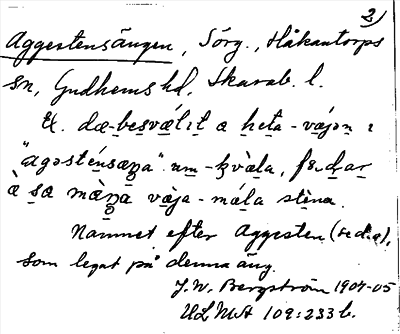 2)
Aggestensängen, Sörg., Håkantorps
sn, Gudhems hd, Skarab. l.
Ex. dæ-besvǽlıt a heta-vǽjən ı
"agəsténsæŋa" um-kvàla, fœ dar
à sa màŋa vàja-mála stèna.
Namnet efter Aggesten (se d.o.),
som legat på denna äng.
J. W. Bergström 1904-05
ULMA 109:233 b.